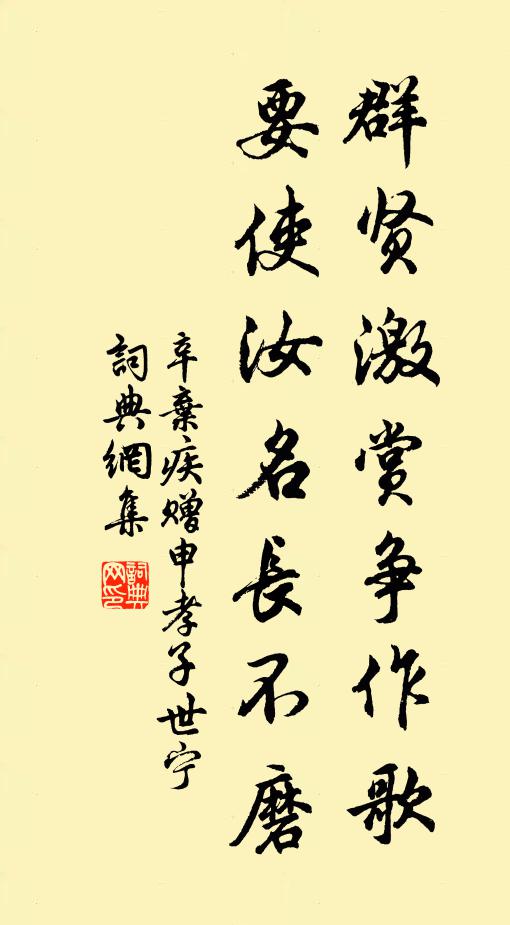 群贤激赏争作歌
要使汝名长不磨
辛棄疾赠申孝子世宁
詞典網集
詞典
网印